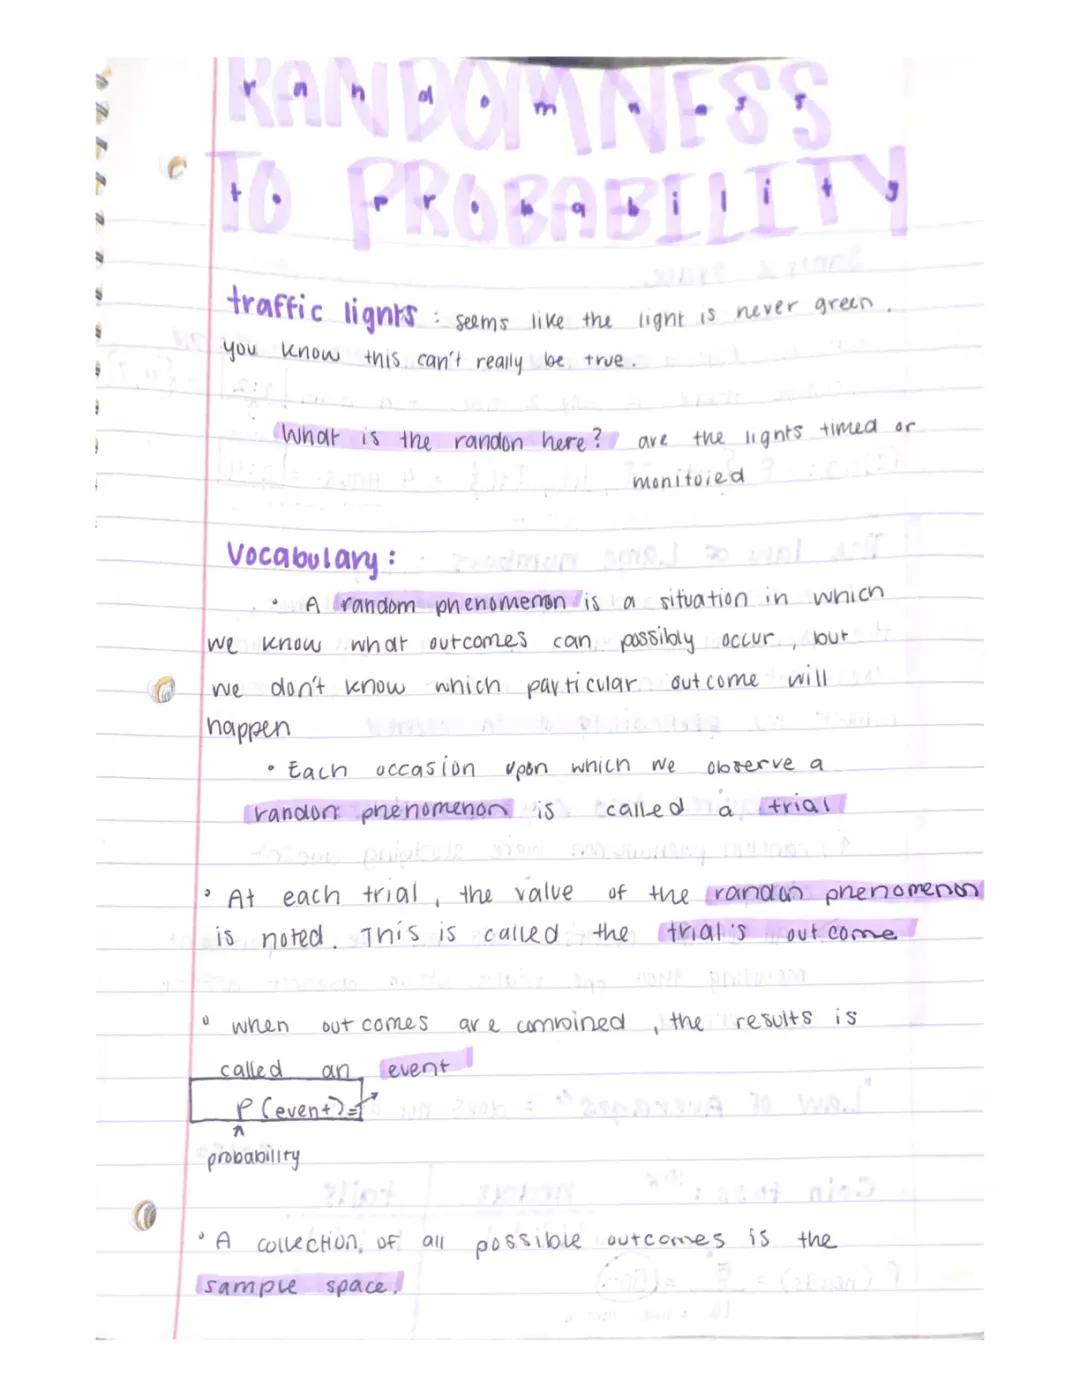 RANDOMNESS
randomness
TO PROBABILITY
to probability
traffic lights : seems like the light is never green.
you know this can't really be true.
What is the randon here? are the lights timed or
monitored
Vocabulary:
• A random phenomenon is a situation in which
we know what outcomes can possibly occur, but
we don't know which particular outcome will
happen
• Each occasion upon which we observe a
random phenomenon is called a trial
• At each trial, the value of the random phenomenon
is noted. This is called the trial's outcome
• when outcomes are combined, the results is
called an event
P(event)=
probability
• A collection of all possible outcomes is the
sample space.